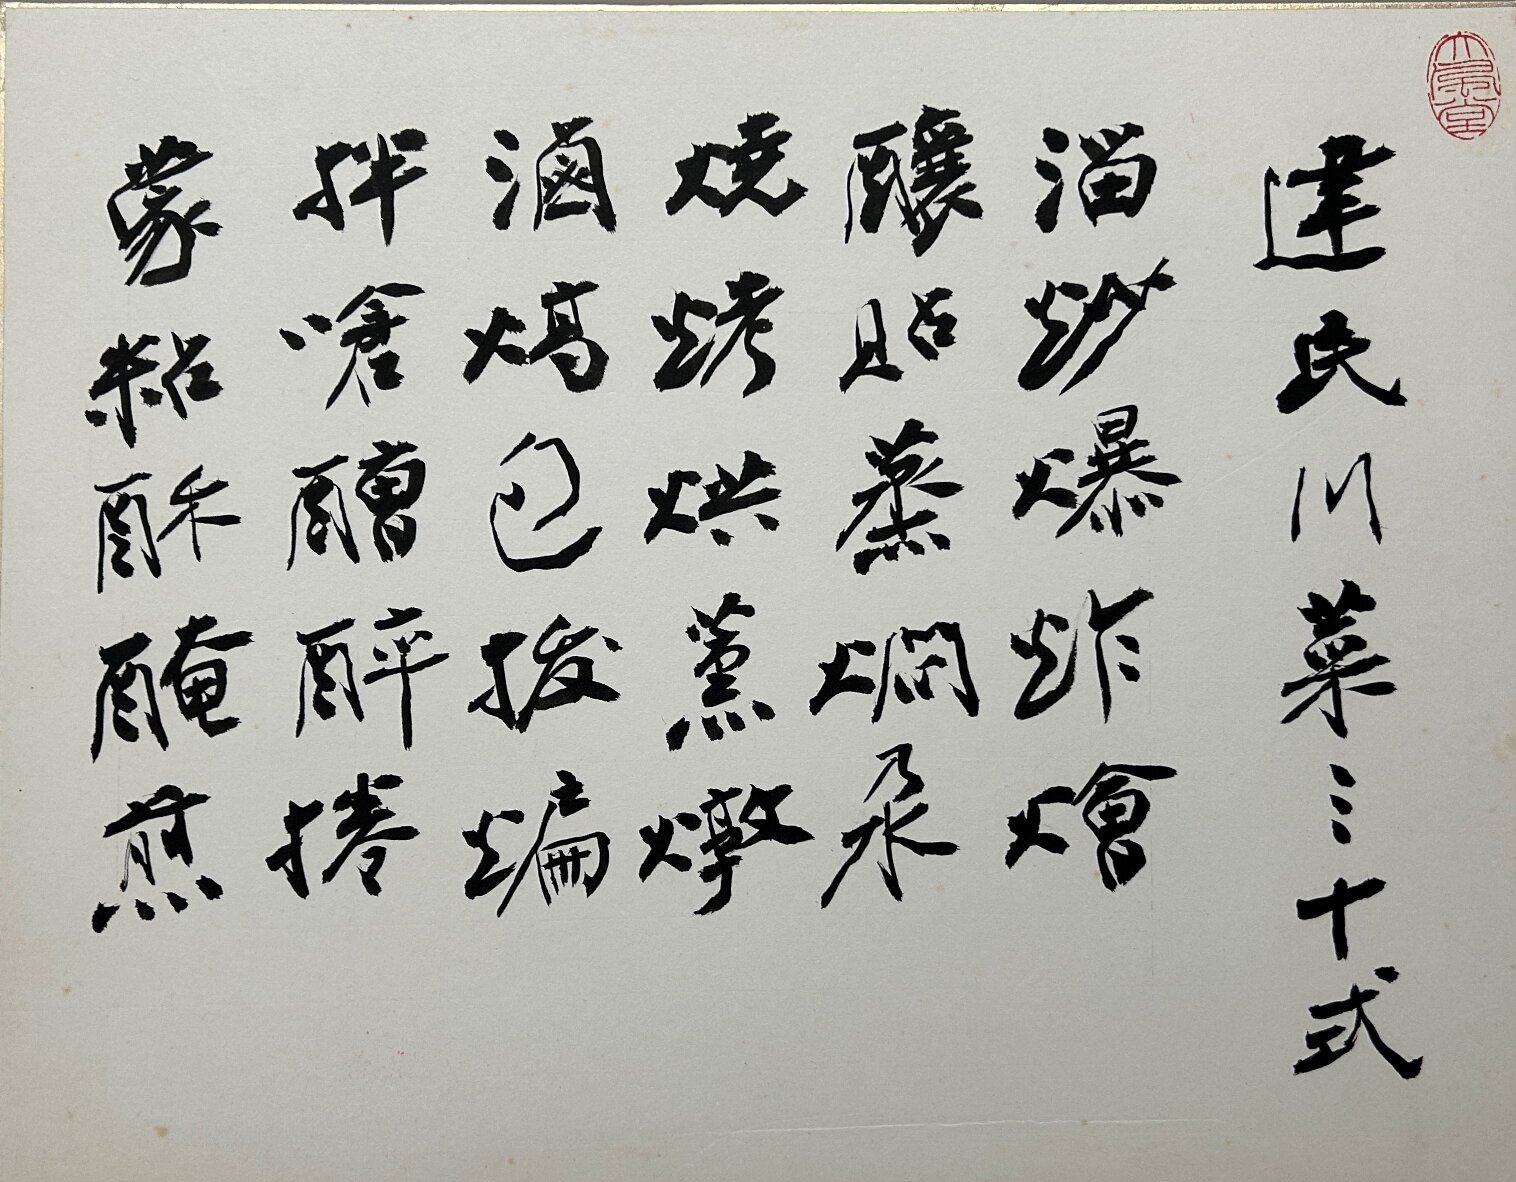 建民川菜三十式
溜炒爆炸燴
釀貼蒸燜汆
燒烤烘薰燉
滷熇包拔煸
拌嗆醩醉捲
蒙粘酥醃煎